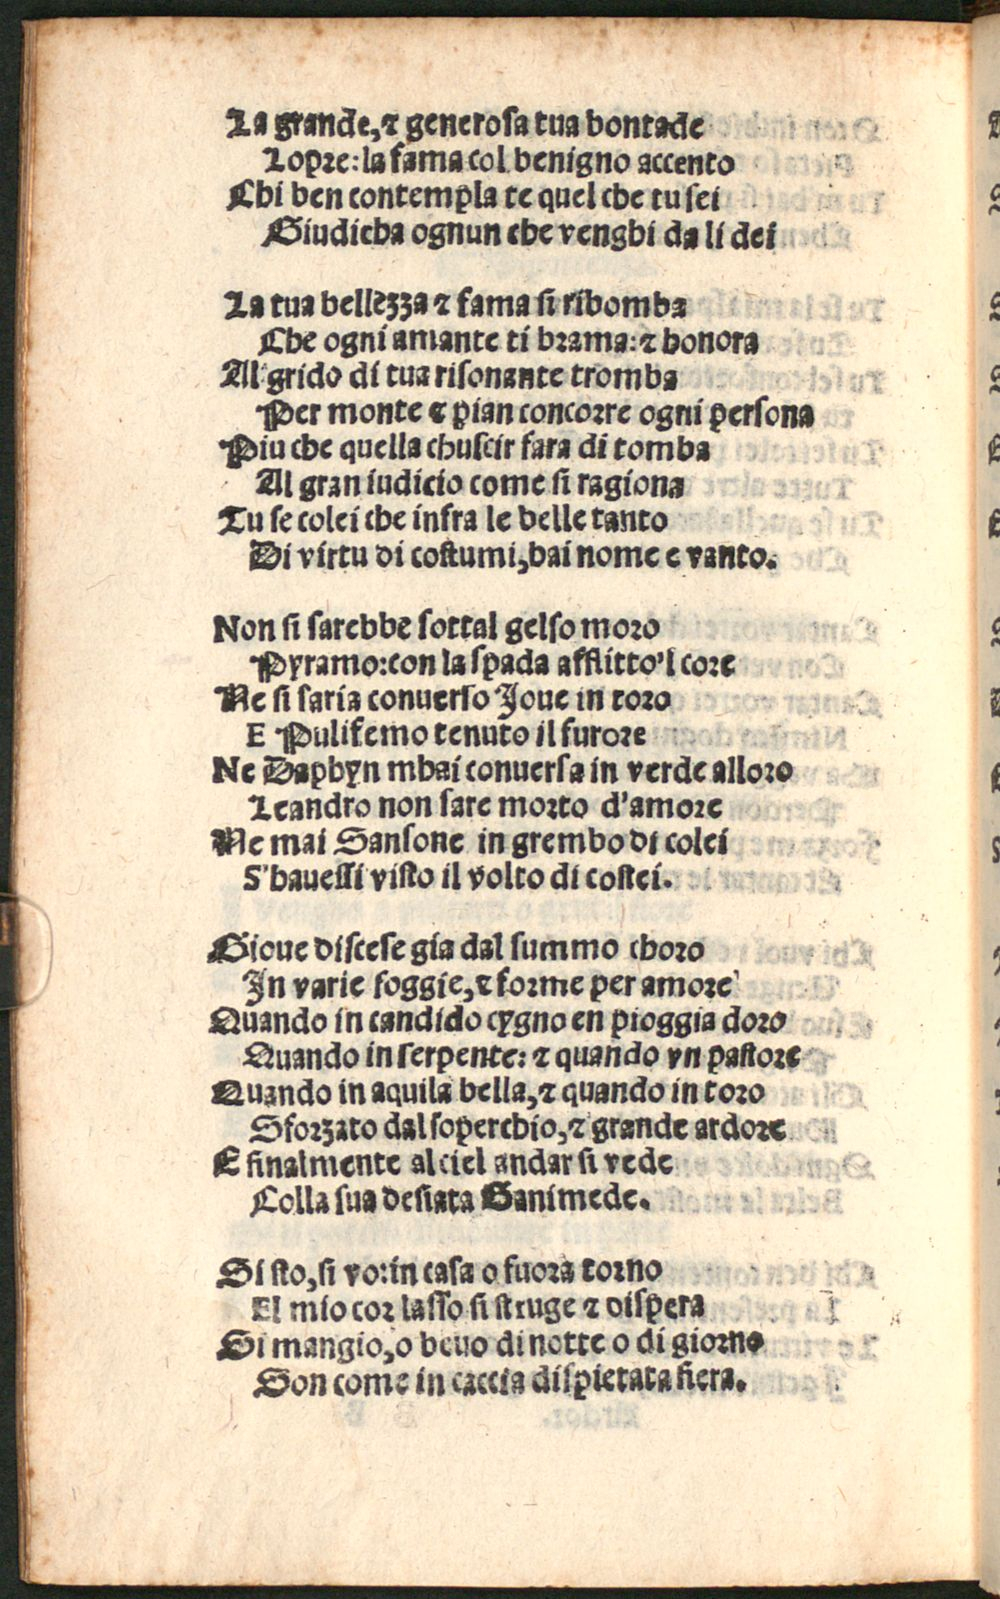 La grande,⁊ generosa tua bontade
Lopre: la fama col benigno accento
Chi ben contempla te quel che tu sei
Giudicha ognun che venghi da li dei
La tua bellezza ⁊ fama si ribomba
Che ogni amante ti brama: ⁊ honora
Al grido di tua risonante tromba
Per monte ⁊ pian concorre ogni persona
Piu che quella chuscir fara di tomba
Al gran iudicio come si ragiona
Tu se colei che infra le belle tanto
Di virtu di costumi, hai nome e vanto.
Non si sarebbe sottal gelso moro
Pyramo: con la spada afflitto'l core
Ne si saria conuerso Ioue in toro
E Pulifemo tenuto il furore
Ne Daphyn mhai conuersa in verde alloro
Leandro non sare morto d'amore
Ne mai Sansone in grembo di colei
S'hauessi visto il volto di costei.
Gioue discese gia dal summo choro
In varie foggie, ⁊ forme per amore
Quando in candido cygno en pioggia doro
Quando in serpente: ⁊ quando vn pastore
Quando in aquila bella, ⁊ quando in toro
Sforzato dal soperchio, ⁊ grande ardore
E finalmente al ciel andar si vede
Colla sua desiata Ganimede.
Si sto, si vo: in casa o fuora torno
El mio cor lasso si struge ⁊ dispera
Si mangio, o beuo di notte o di giorno
Son come in caccia dispietata fiera.